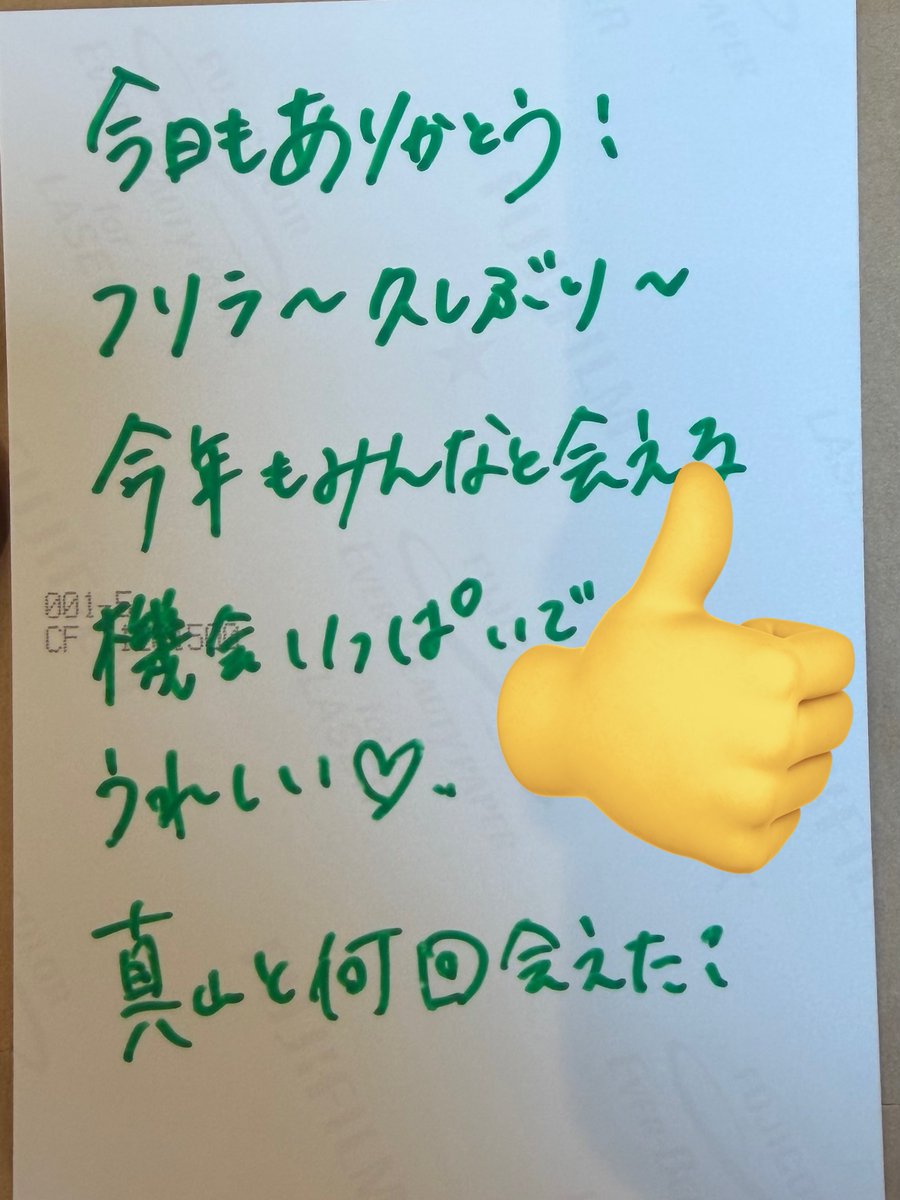 今日もありがとう!
フリラ〜久しぶり〜
今年もみんなと会える
機会いっぱいで
うれしい♡
真山と何回会えた?
001-E
CF